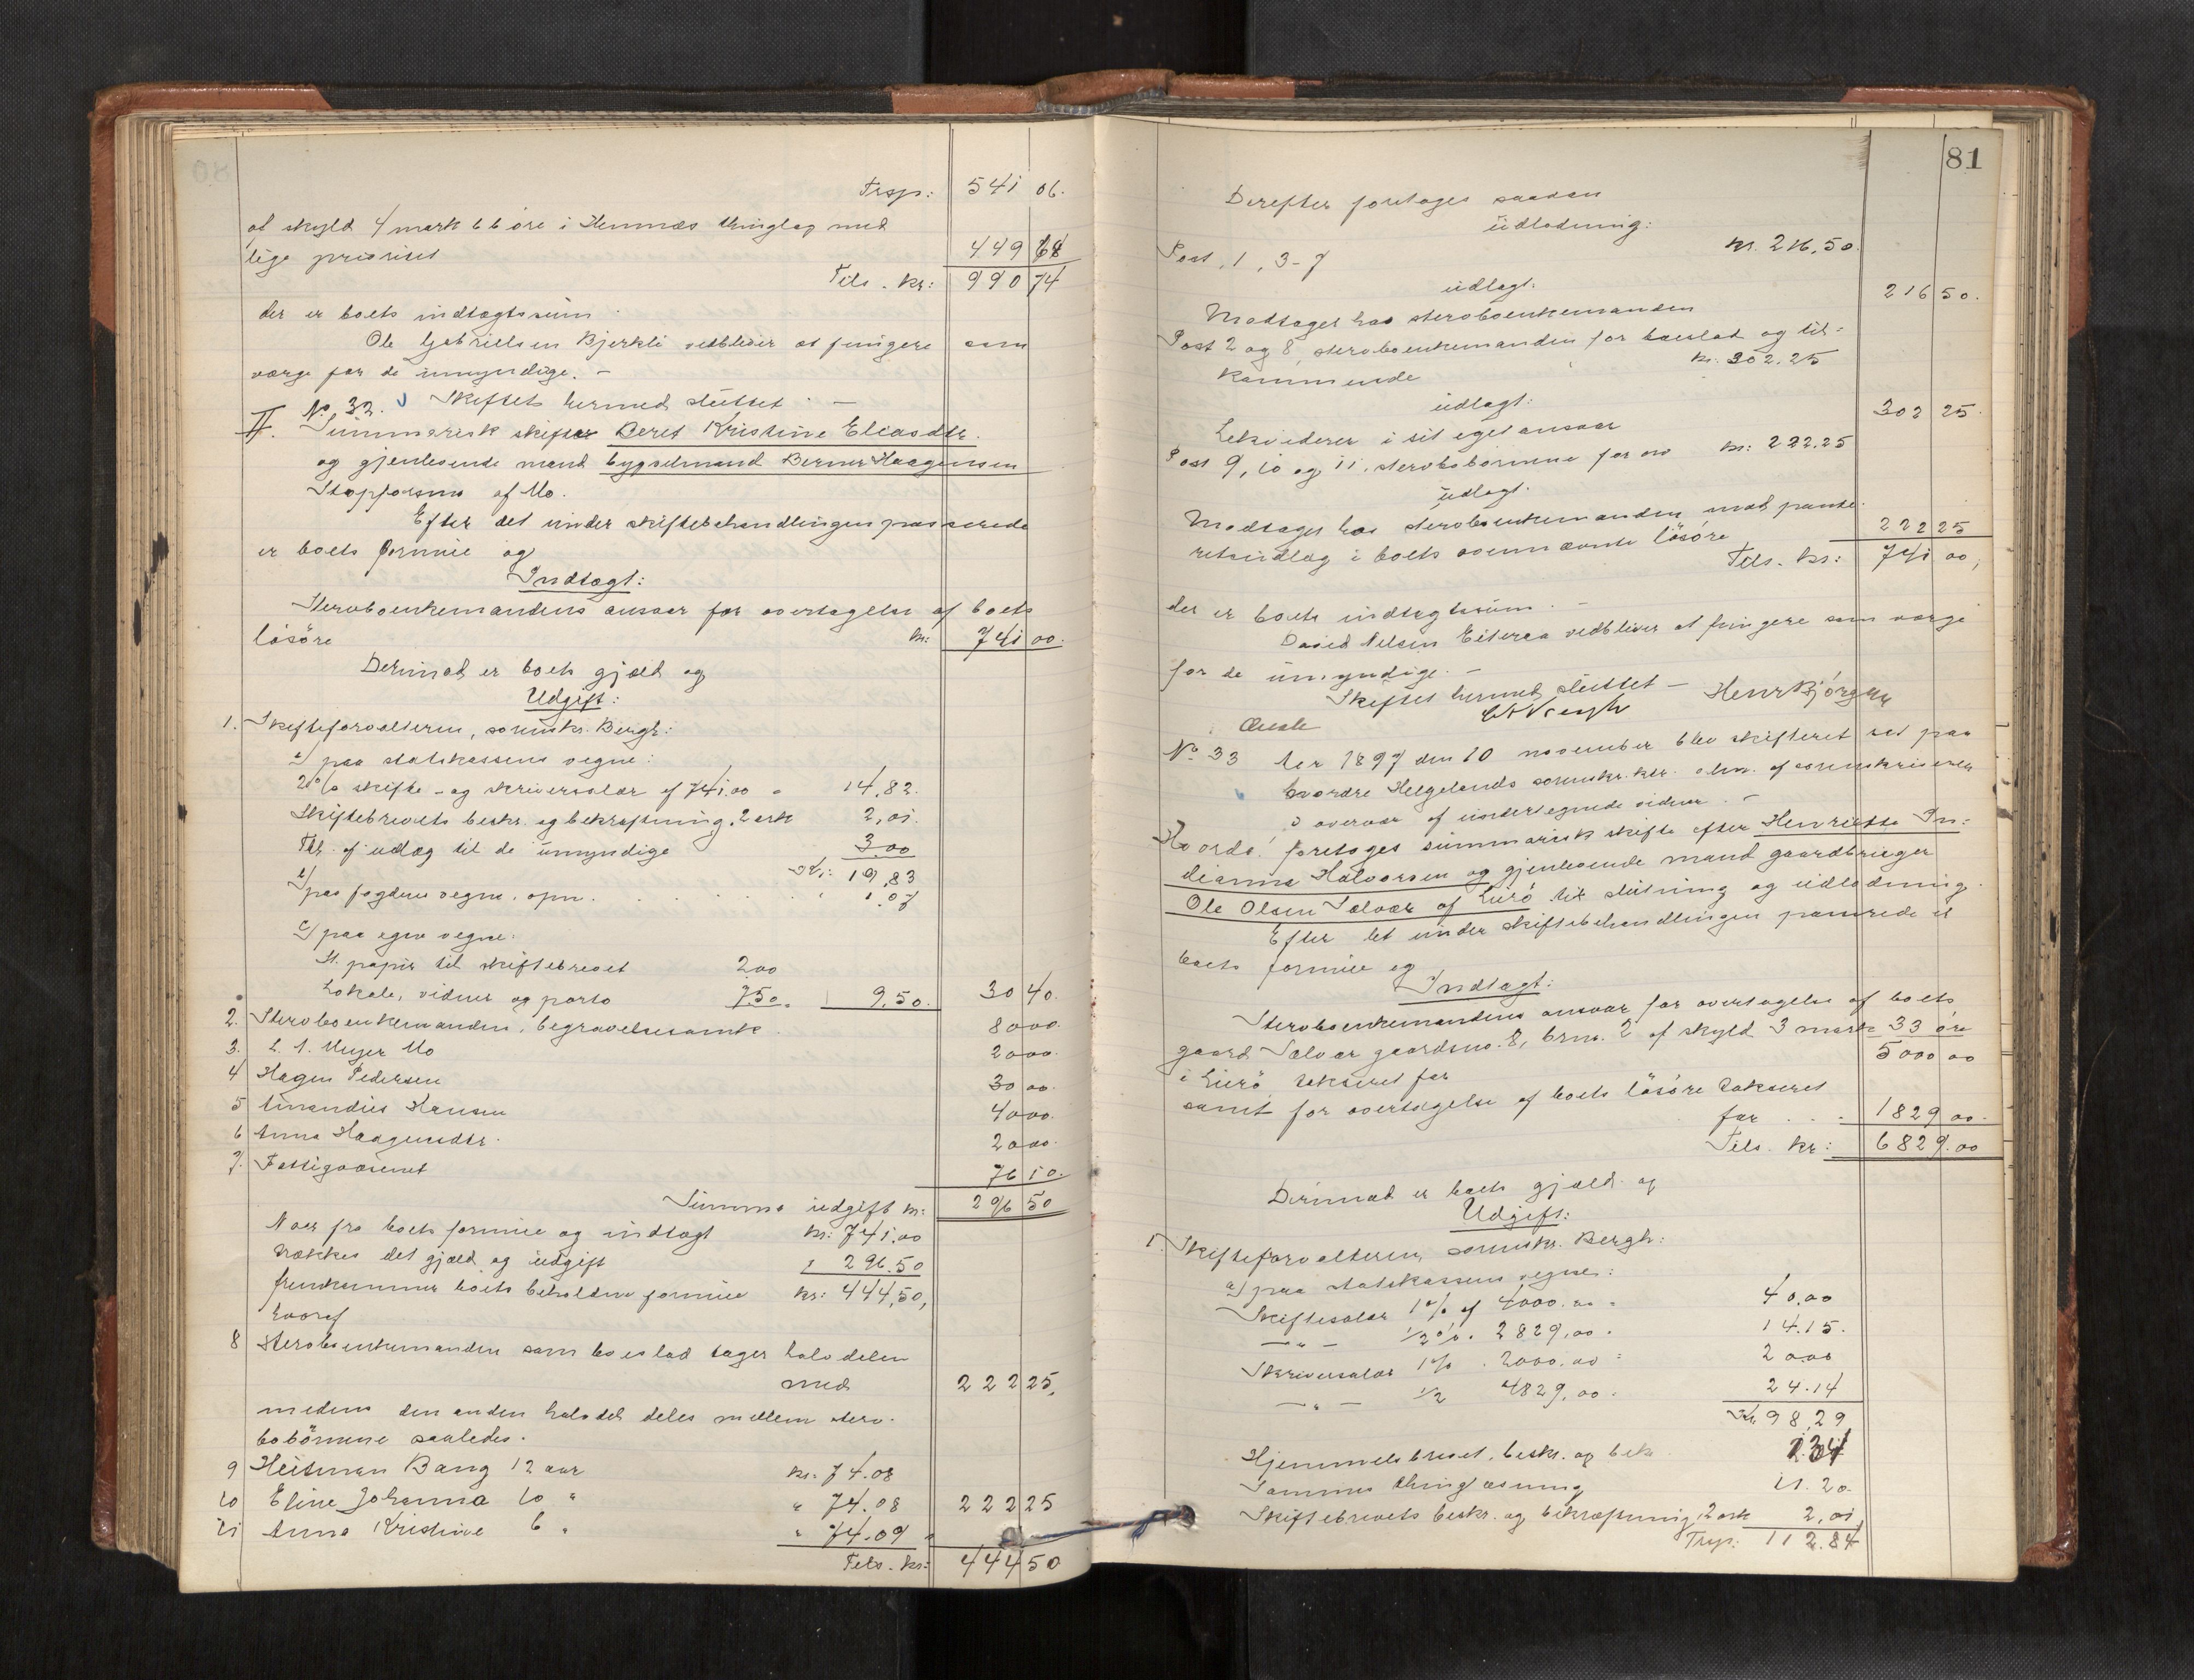 Trsp: 541 06.
af skyld 4 mark 66 øre i Hemnæs thinglag med
lige prioritet 449 68
Tils. kr: 990 74
der er boets indtægtssum.
Ole Gabrielsen Bjerkli vedbliver at fungere som
værge for de umyndige. –
No. 32. Skiftet hermed sluttet. –
II. Summarisk skifte Beret Kristine Eliasdtr.
og gjenlevende mand bygselmand Berner Haagensen
Stopforsmo af Mo.
Efter det under skiftebehandlingen passerede
er boets formue og
Indtægt:
Sterboenkemandens ansvar for overtagelse af boets
løsøre kr: 741 00.
Derimod er boets gjæld og
Udgift:
1. Skifteforvalteren, sorenskr. Bergh:
a) paa statskassens vegne:
2% skifte- og skriversalær af 741.00 " 14,82.
Skiftebrevets beskr. og bekræftning, 2 ark 2,01.
Thl. af udlæg til de umyndige 3.00
19,83
b) paa fogdens vegne, opn. 1.07
c) paa egne vegne:
St. papir til skiftebrevet 2.00
Lokale, vidner og porto 7.50. 9,50. 30 40.
2. Sterboenkemanden, begravelsesomk. 80 00.
3. L. A. Meyer Mo 20 00.
4 Hagen Pedersen 30 00.
5 Amandus Hansen 40 00.
6 Anna Haagensdtr. 20 00.
7. Fattigvæsenet 76 10.
Summa udgift kr: 296 50
Naar fra boets formue og indtægt kr: 741.00
trækkes det gjæld og udgift " 296.50
fremkommer boets beholdne formue kr: 444,50,
hvoraf
8 Sterboenkemanden som boeslod tager halvdelen
med 222 25.
medens den anden halvdel deles mellem sterv-
bobørnene saaledes.
9 Heitman Bang 12 aar kr. 74.08
10 Eline Johanna 10 " " 74.08 222 25
11 Anna Kristine 6 " " 74.09
Tils. kr: 444 50
81
Derefter foretages saadan
udlodning:
Post, 1, 3-7 kr. 216,50.
udlagt:
Modtaget hos sterboenkemanden 216 50.
Post 2 og 8, sterboenkemanden for boeslod og til-
kommende kr. 302,25
udlagt:
Likviderer i sit eget ansvar 302 25.
Post 9, 10 og 11, sterbobørnene for arv kr: 222.25
udlagt.
Modtaget hos sterboenkemanden mod pante-
retsindlæg i boets ovennævnte løsøre 222 25
Tils. kr: 741 00,
der er boets indtægtssum. –
David Nilsen Eiteraa vedbliver at fungere som værge
for de umyndige. –
Skiftet hermed sluttet – Henr Bjørgum
No. 33 Aar 1897 den 10 november blev skifteret sat paa
nordre Helgelands sorenskr.ktr. adm. af sorenskriveren
i overvær af undertegnede vidner. –
Hvorda: Foretoges summarisk skifte efter Henriette In-
deanna Halvorsen og gjenlevende mand gaardbruger
Ole Olsen Selvær af Lurø til slutning og udlodning.
Efter det under skiftebehandlingen passerede er
boets formue og
Indtægt:
Sterboenkemandens ansvar for overtagelse af boets
gaard Selvær gaardsno. 8, brno. 2 af skyld 3 mark 33 øre
i Lurø takseret for 5000 00
samt for overtagelse af boets løsøre takseret
for 1829 00.
Tils. kr: 6829.00
Derimod er boets gjæld og
Udgift:
1. Skifteforvalteren, sorenskr. Bergh:
a) paa statskassens vegne:
Skiftesalær 1% af 4000.00 " 40.00
– " – 1/2 % " 2829,00. 14.15.
Skriversalær 1% . 2000.00 = 20.00
– " – 1/2 4829,00. 24.14
Kr. 98,29
Hjemmelsbrevet, beskr. og bek. 1.34
Sammes thinglæsning 11.20.
Skiftebrevets beskr. og bekræftning, 2 ark 2,01,
Trsp: 112.84